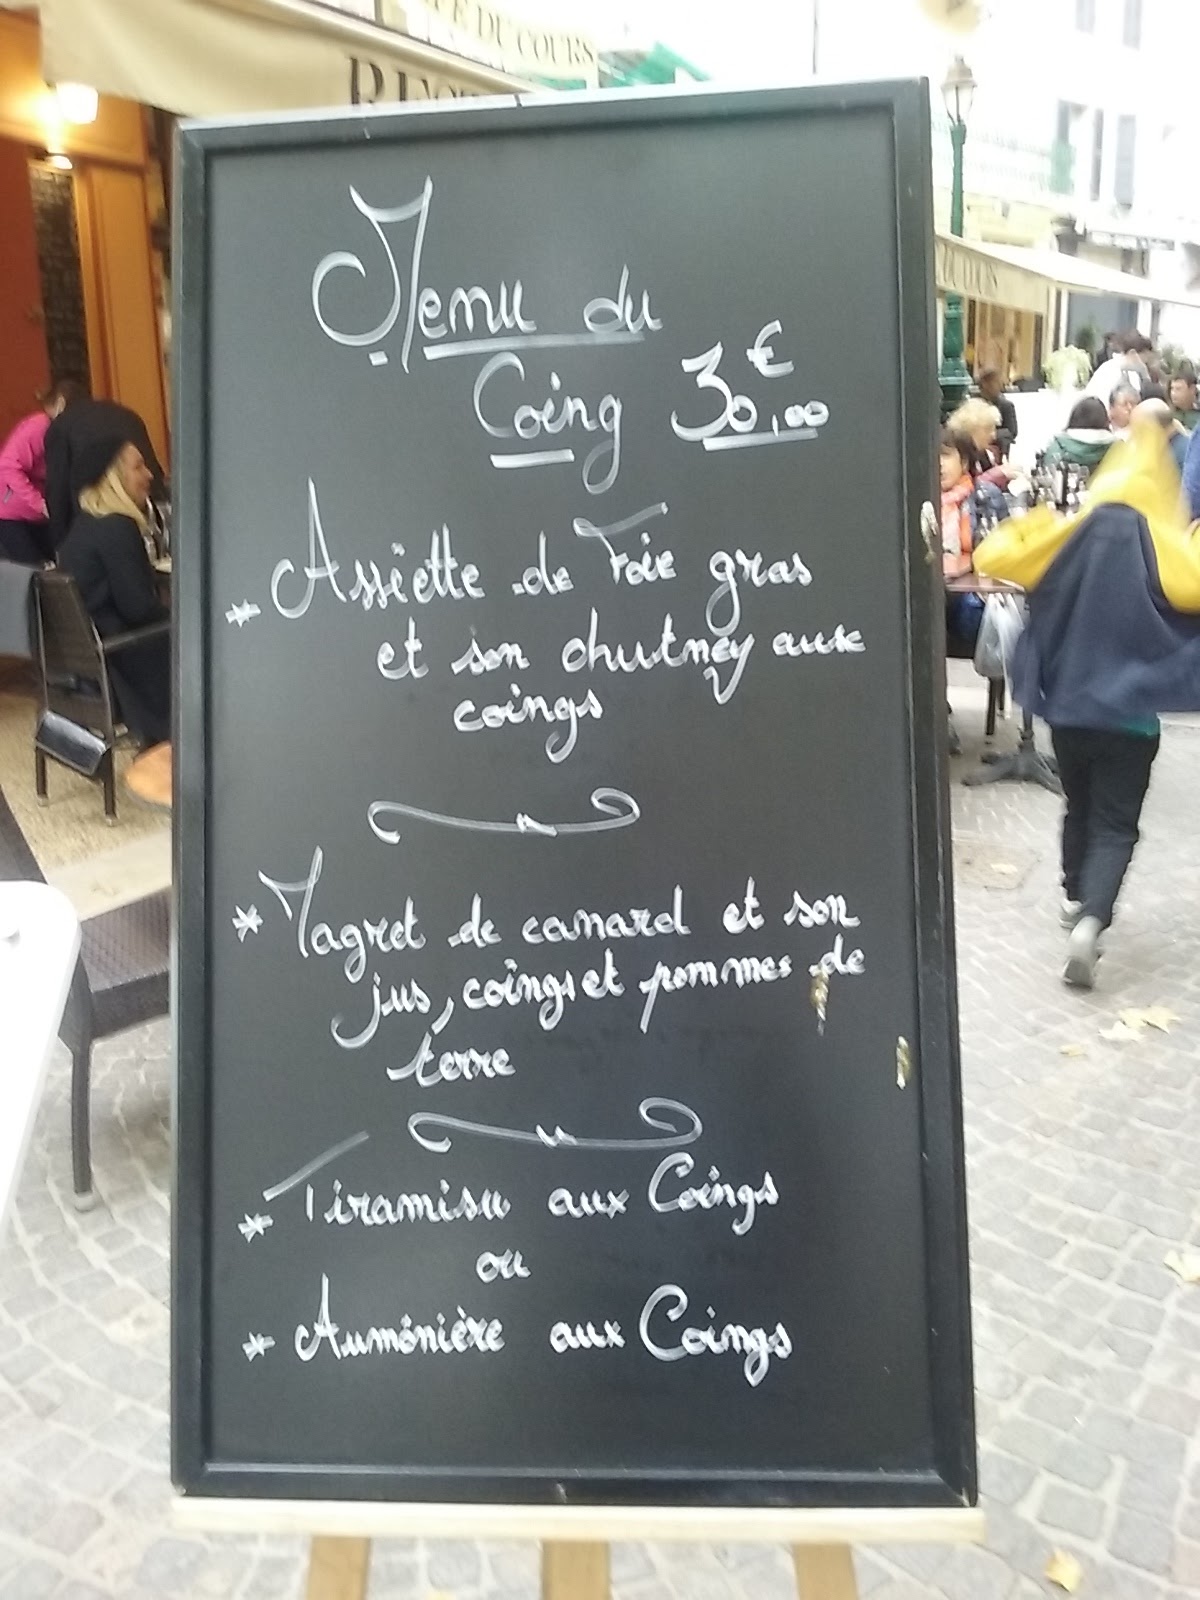 DU COURS
DU COURS
Menu du
Coing 30,00€
* Assiette de Foie gras
et son chutney aux
coings
* Magret de canard et son
jus, coings et pommes de
terre
* Tiramisu aux Coings
ou
* Aumônière aux Coings